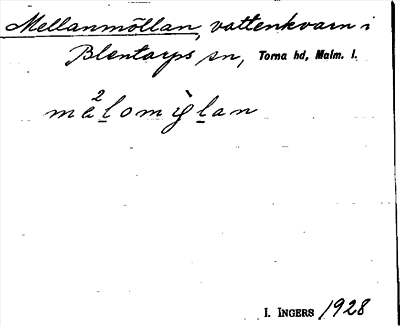 Mellanmöllan, vattenkvarn i
Blentarps sn, Torna hd, Malm. l.
I. INGERS 1928